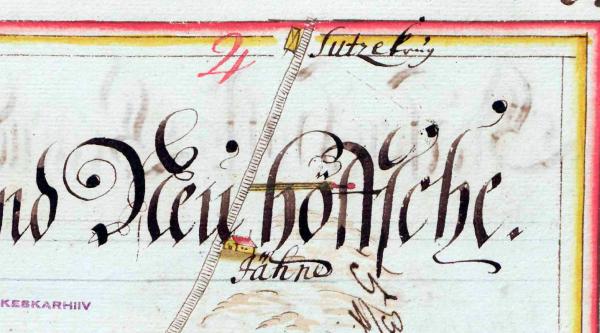 Sutzekrüg
24
nd Neuhöffsche.
Jähne
KESKARHIIV